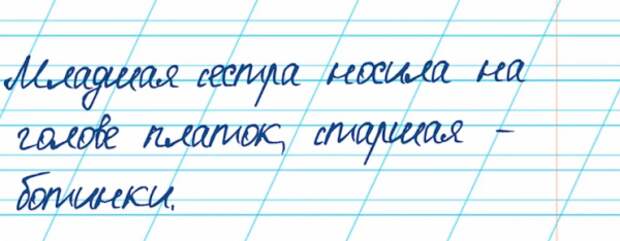 Младшая сестра носила на
голове платок, старшая –
ботинки.